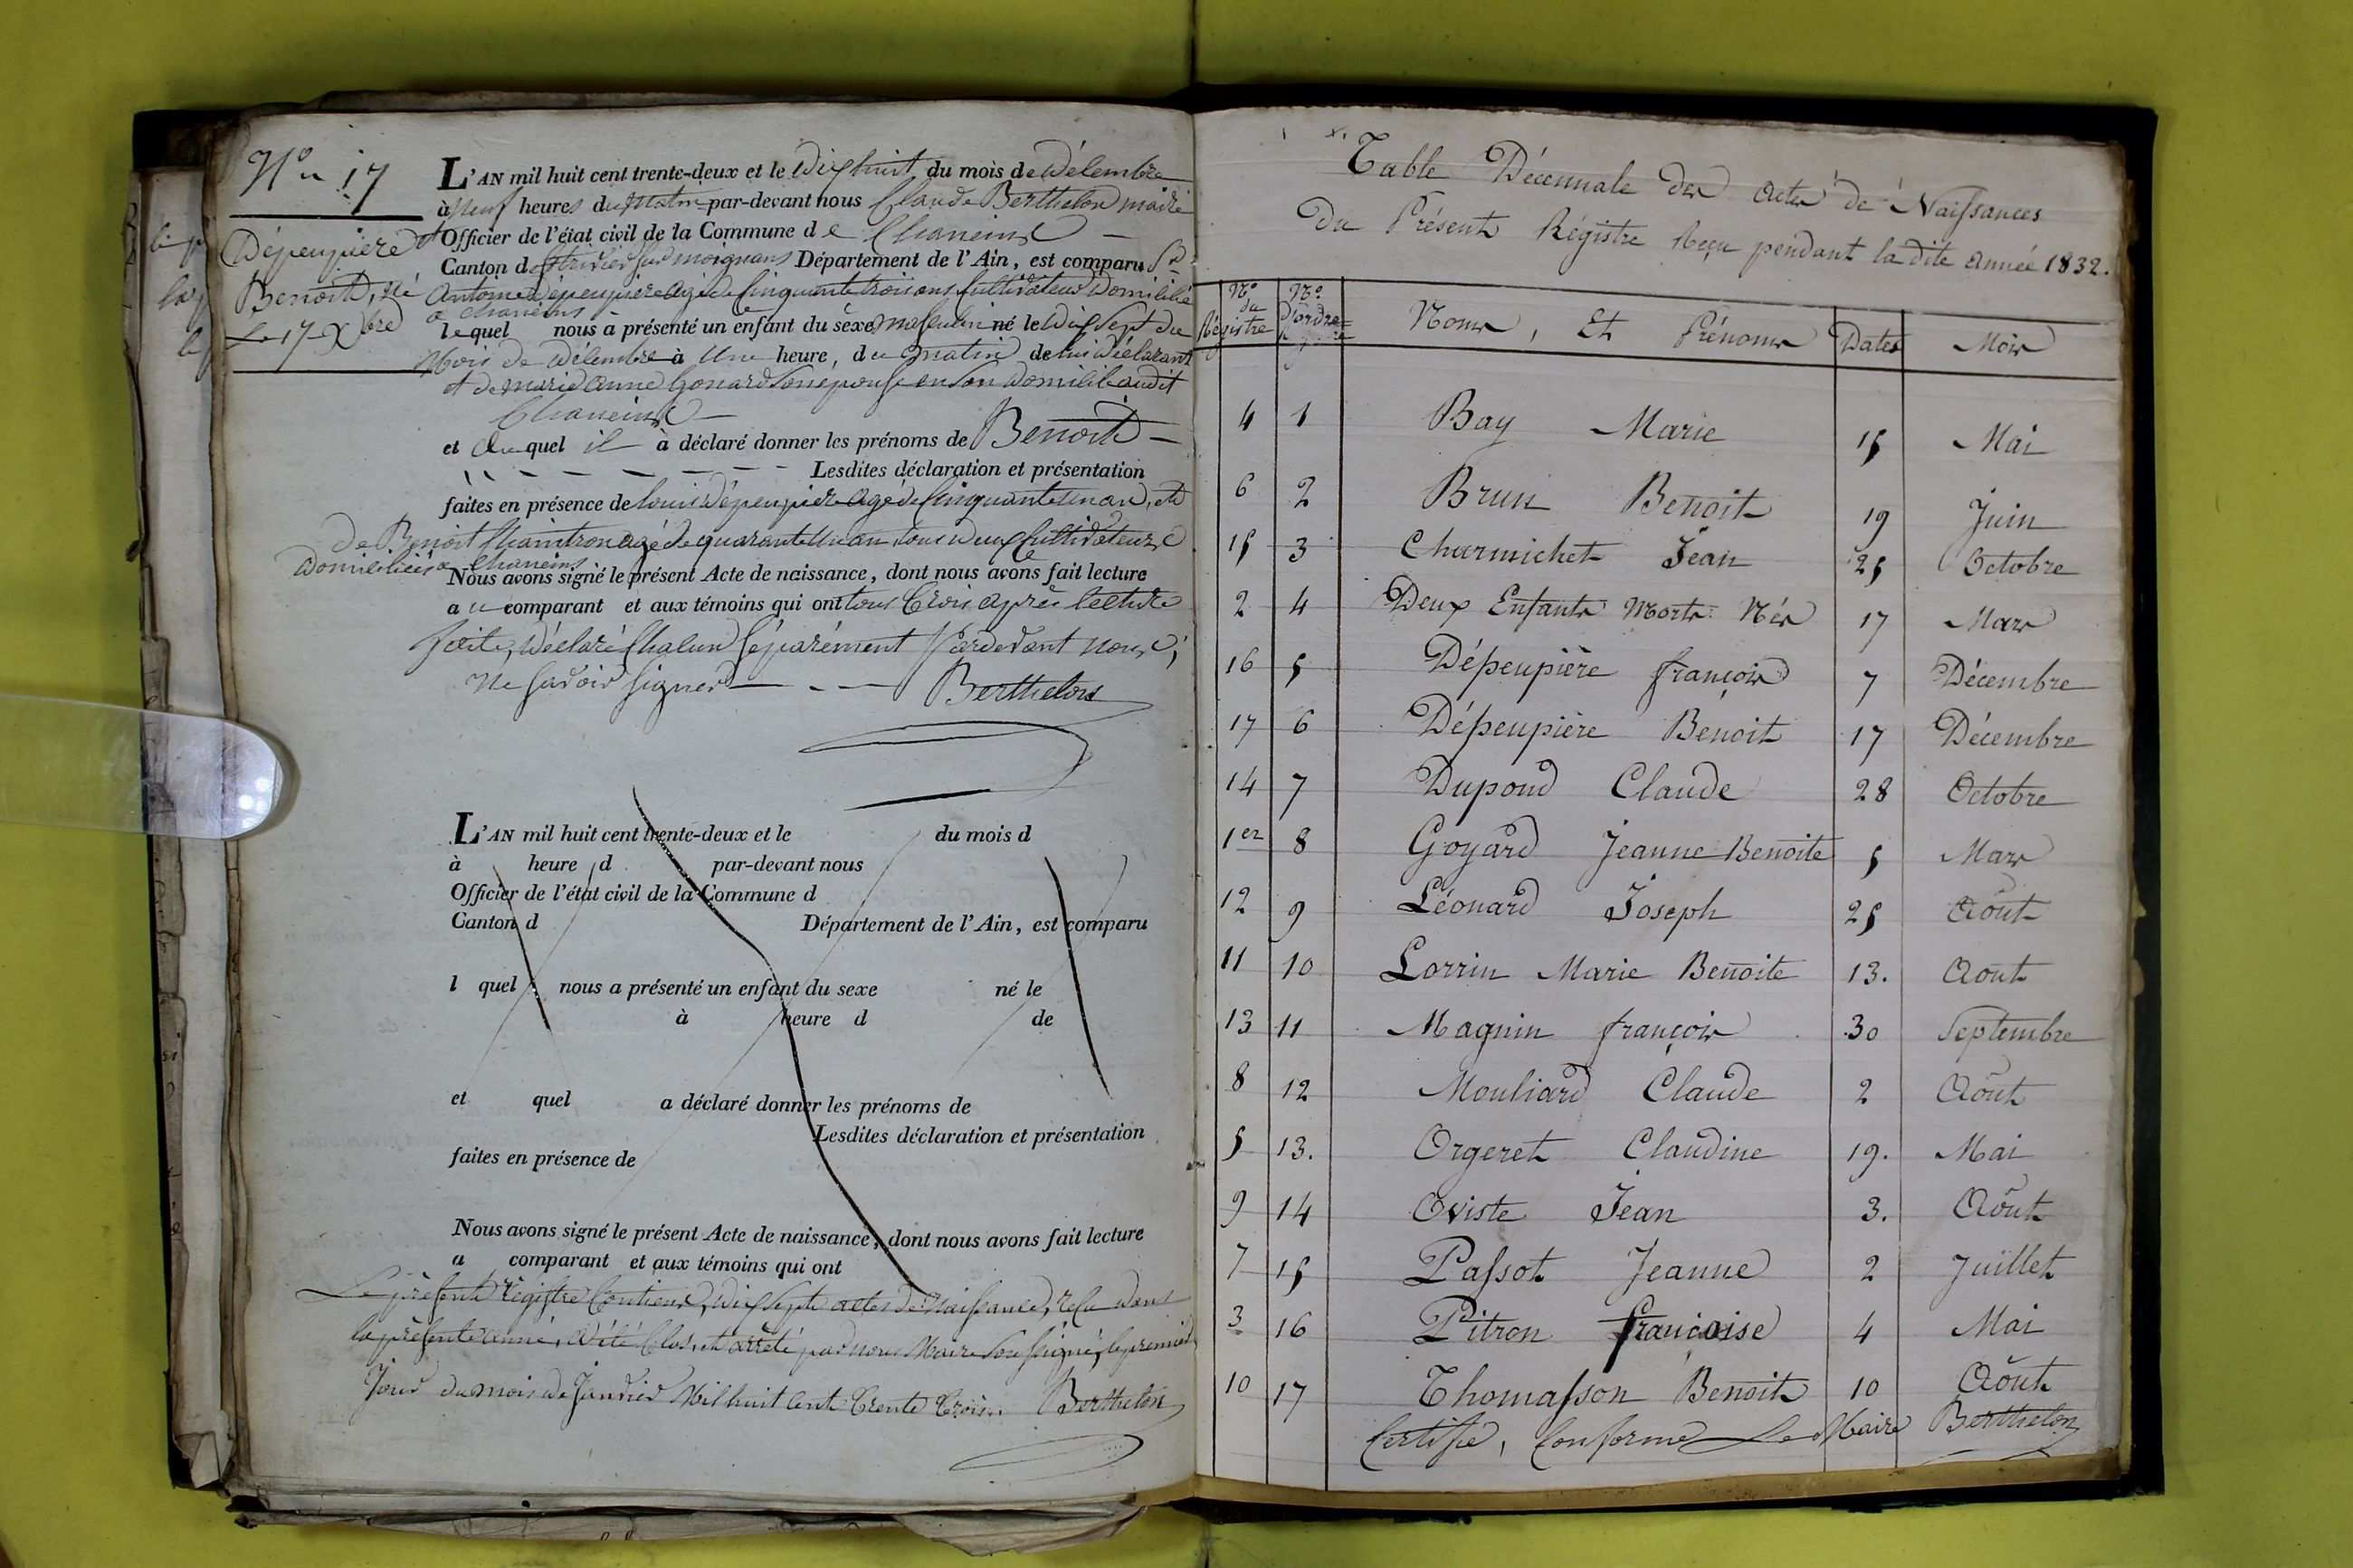 N° 17
Dépeupiere
Benoit, né
Le 17 Xbre
L'AN mil huit cent trente-deux et le dix huit du mois de décembre
à neuf heures du matin par-devant nous Claude Berthelon maire
Officier de l'état civil de la Commune de Chaneins
Canton de St trivier sur moignans Département de l'Ain, est comparu Sr
Antoine Dépeupiere agé de Cinquante trois ans Cultivateur Domicilié
a Chaneins
lequel nous a présenté un enfant du sexe masculin né le dix sept du
Mois de décembre à Une heure, du matin de lui déclarant
et de marie anne Gonard son épouse en son domicile audit
Chaneins
et auquel il a déclaré donner les prénoms de Benoit
Lesdites déclaration et présentation
faites en présence de louis Dépeupier agé de Cinquante un an, et
de Benoit Chaintron agé de quarante un an tous deux Cultivateurs
Domiciliés a Chaneins
Nous avons signé le présent Acte de naissance, dont nous avons fait lecture
au comparant et aux témoins qui ont tous trois après lecture
faite, déclaré Chacun Séparément Pardevant nous,
ne Savoir Signer Berthelon
L'AN mil huit cent trente-deux et le du mois d
à heure d par-devant nous
Officier de l'état civil de la Commune d
Canton d Département de l'Ain, est comparu
l quel nous a présenté un enfant du sexe né le
à heure d de
et quel a déclaré donner les prénoms de
Lesdites déclaration et présentation
faites en présence de
Nous avons signé le présent Acte de naissance, dont nous avons fait lecture
a comparant et aux témoins qui ont
Le présent Régistre Contient, dix Sept actes de Naissance, reçu dans
la présente anné, a été Clos, et arrêté par nous Maire Soussigné, le premier
Jour du mois de Janvier Mil huit cent trente trois. Berthelon
Table Décennale des Actes de Naissances
du Présent Régistre Reçu pendant la dite année 1832.
N° du Régistre N° D'ordre Noms, Et Prénoms Dates Mois
4 1 Bay Marie 15 Mai
6 2 Brun Benoit 19 Juin
15 3 Charmichet Jean 25 Octobre
2 4 Deux Enfants Morts Nés 17 Mars
16 5 Dépeupière françois 7 Décembre
17 6 Dépeupière Benoit 17 Décembre
14 7 Dupond Claude 28 Octobre
1er 8 Goyard Jeanne Benoite 5 Mars
12 9 Léonard Joseph 25 Août
11 10 Lorrin Marie Benoite 13. Aout
13 11 Magnin françois 30 Septembre
8 12 Mouliard Claude 2 Août
5 13. Orgeret Claudine 19. Mai
9 14 Oviste Jean 3. Août
7 15 Passot Jeanne 2 Juillet
3 16 Pitron françoise 4 Mai
10 17 Thomasson Benoit 10 Août
Certifié, Conforme Le Maire Berthelon